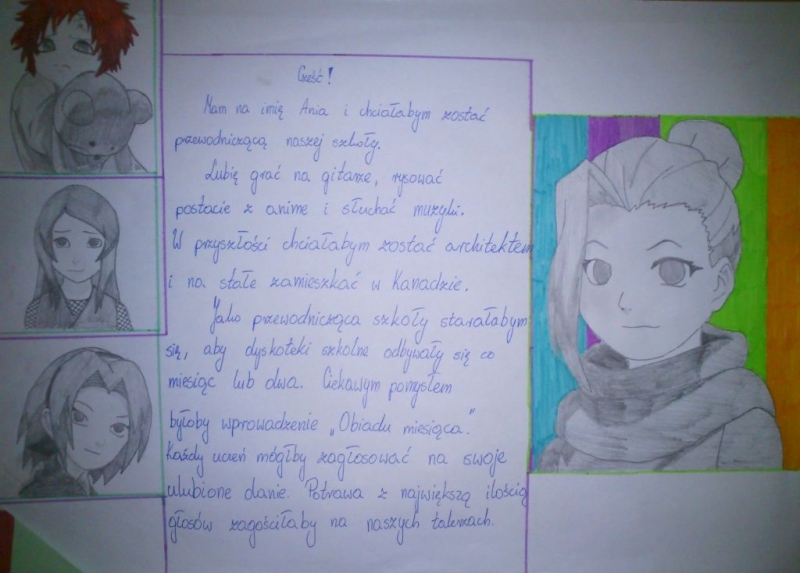 Cześć!
Mam na imię Ania i chciałabym zostać
przewodniczącą naszej szkoły.
Lubię grać na gitarze, rysować
postacie z anime i słuchać muzyki.
W przyszłości chciałabym zostać architektem
i na stałe zamieszkać w Kanadzie.
Jako przewodnicząca szkoły starałabym
się, aby dyskoteki szkolne odbywały się co
miesiąc lub dwa. Ciekawym pomysłem
byłoby wprowadzenie „Obiadu miesiąca."
Każdy uczeń mógłby zagłosować na swoje
ulubione danie. Potrawa z największą ilością
głosów zagościłaby na naszych talerzach.